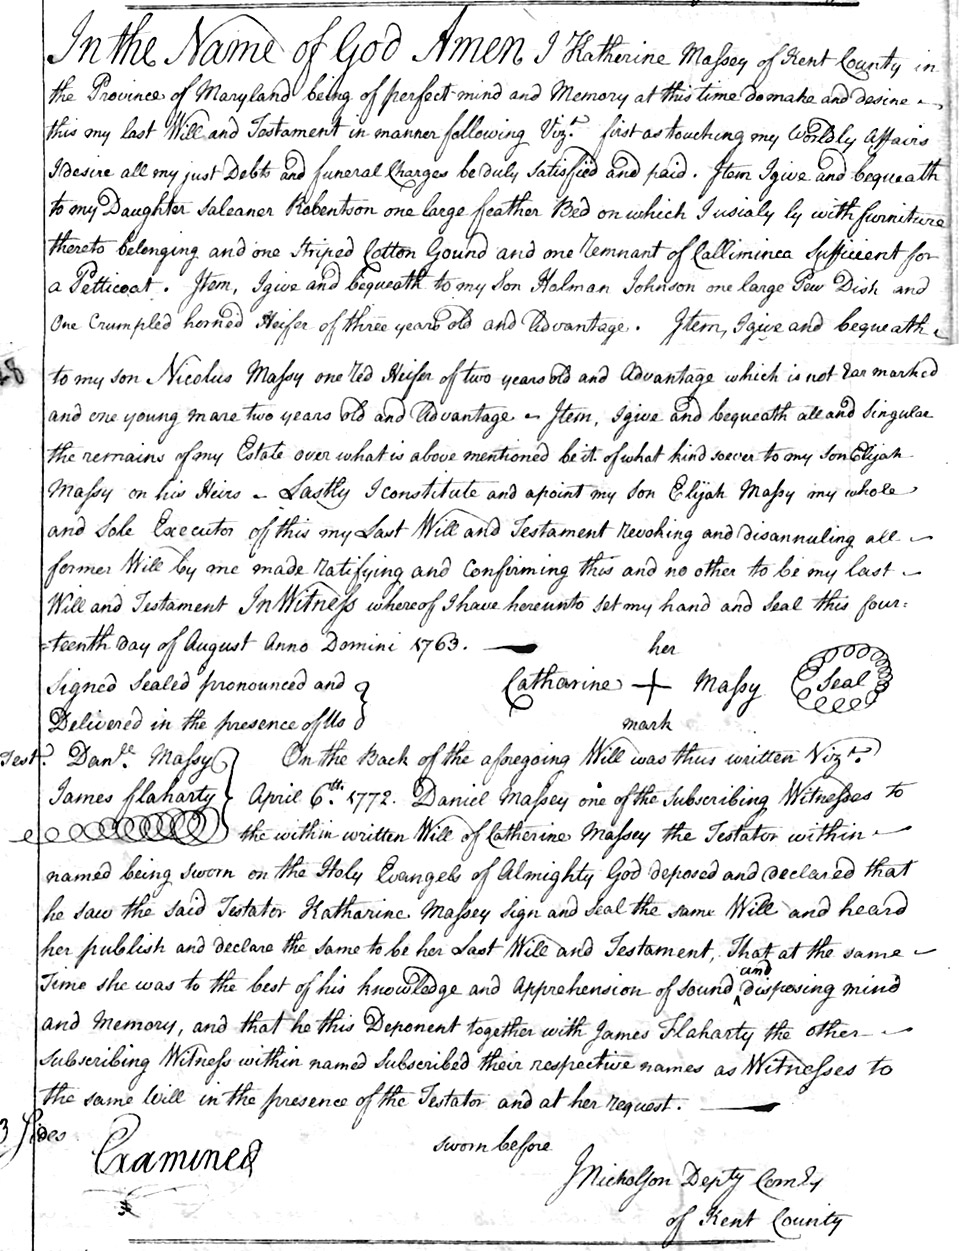 In the Name of God Amen I Katherine Massey of Kent County in
the Province of Maryland being of perfect mind and Memory at this time do make and desine
this my last Will and Testament in manner following Vizt. first as touching my Worldly Affairs
I desire all my just Debts and funeral Charges be duly Satisfied and paid. Item I give and bequeath
to my Daughter Saleaner Robertson one large feather Bed on which I usialy ly with furniture
thereto belonging and one Striped Cotton Gound and one remnant of Calliminca Sufficient for
a Petticoat. Item, I give and bequeath to my Son Holman Johnson one large Pew Dish and
One Crumpled horned Heifer of three years old and Advantage. Item, I give and bequeath
to my son Nicolus Massy one red Heifer of two years old and Advantage which is not Ear marked
and one young mare two years old and Advantage - Item, I give and bequeath all and Singular
the remains of my Estate over what is above mentioned be it of what kind soever to my son Elijah
Massy on his Heirs - Lastly I constitute and apoint my son Elijah Massy my whole
and Sole Executor of this my Last Will and Testament revoking and disannuling all
former Will by me made ratifying and Confirming this and no other to be my last
Will and Testament In Witness whereof I have hereunto set my hand and Seal this four=
=teenth day of August Anno Domini 1763.
her
Signed Sealed pronounced and
Catharine + Massy Seal
Delivered in the presence of Us
mark
Test. Danle. Massy
On the Back of the aforegoing Will was thus written Vizt.
James Flaharty
April 6th. 1772. Daniel Massey one of the Subscribing Witnesses to
the within written Will of Catherine Massey the Testator within
named being sworn on the Holy Evangels of Almighty God deposed and declared that
he saw the said Testator Katharine Massey Sign and seal the same Will and heard
her publish and declare the same to be her Last Will and Testament, That at the same
Time she was to the best of his knowledge and Apprehension of sound and disposing mind
and Memory, and that he this Deponent together with James Flaharty the other
subscribing Witness within named Subscribed their respective names as Witnesses to
the same Will in the presence of the Testator and at her request.
3 Sides
Examined
sworn before
JNicholson Depty Comry
of Kent County